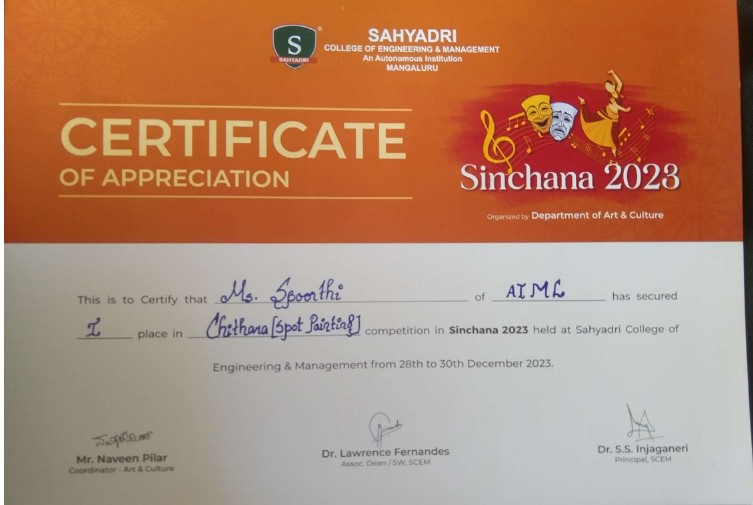 S
SAHYADRI
SAHYADRI
COLLEGE OF ENGINEERING & MANAGEMENT
An Autonomous Institution
MANGALURU
CERTIFICATE
OF APPRECIATION
Sinchana 2023
Organized by Department of Art & Culture
This is to Certify that Ms. Spoorthi of AIML has secured
I place in Chithara [Spot Painting] competition in Sinchana 2023 held at Sahyadri College of
Engineering & Management from 28th to 30th December 2023.
Mr. Naveen Pilar
Coordinator - Art & Culture
Dr. Lawrence Fernandes
Assoc. Dean / SW, SCEM
Dr. S.S. Injaganeri
Principal, SCEM